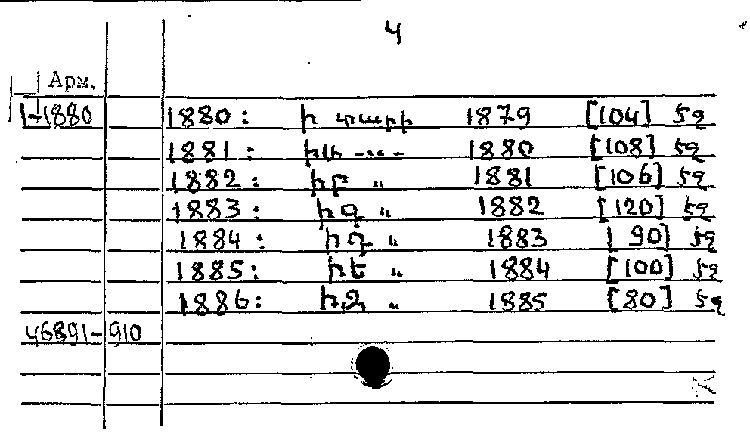 4
Арм.
1-1880 1880: ի տարի 1879 [104] էջ
1881: իա -〃- 1880 [108] էջ
1882: իբ 〃 1881 [106] էջ
1883: իգ 〃 1882 [120] էջ
1884: իդ 〃 1883 [90] էջ
1885: իե 〃 1884 [100] էջ
1886: իզ 〃 1885 [80] էջ
46891-910